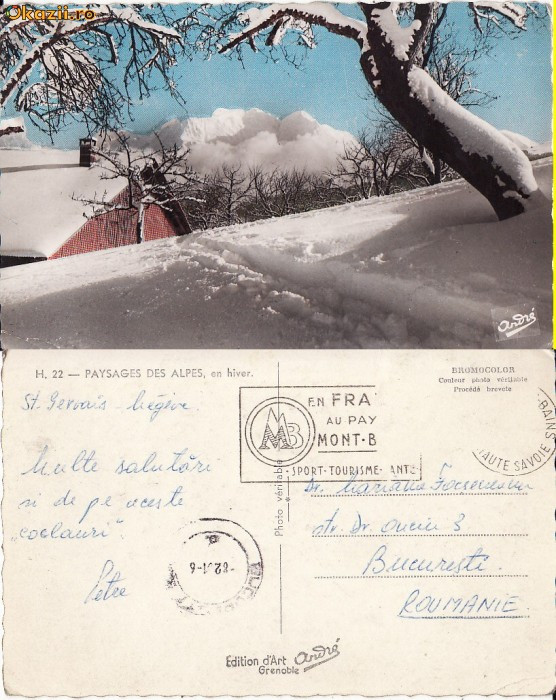 Okazii.ro
André
H. 22 — PAYSAGES DES ALPES, en hiver.
BROMOCOLOR
Couleur photo véritable
Procédé breveté
St. Gervais - Megève
Multe salutări
si de pe aceste
"coclauri".
Petre
EN FRA
AU PAY
MB
MONT-B
SPORT-TOURISME-ANTE
BAINS
HAUTE SAVOIE
Photo véritable
Dr. Mariana Focseneanu
str. Dr. 3
Bucureşti
ROUMANIE
82.1-6
Edition d'Art André
Grenoble